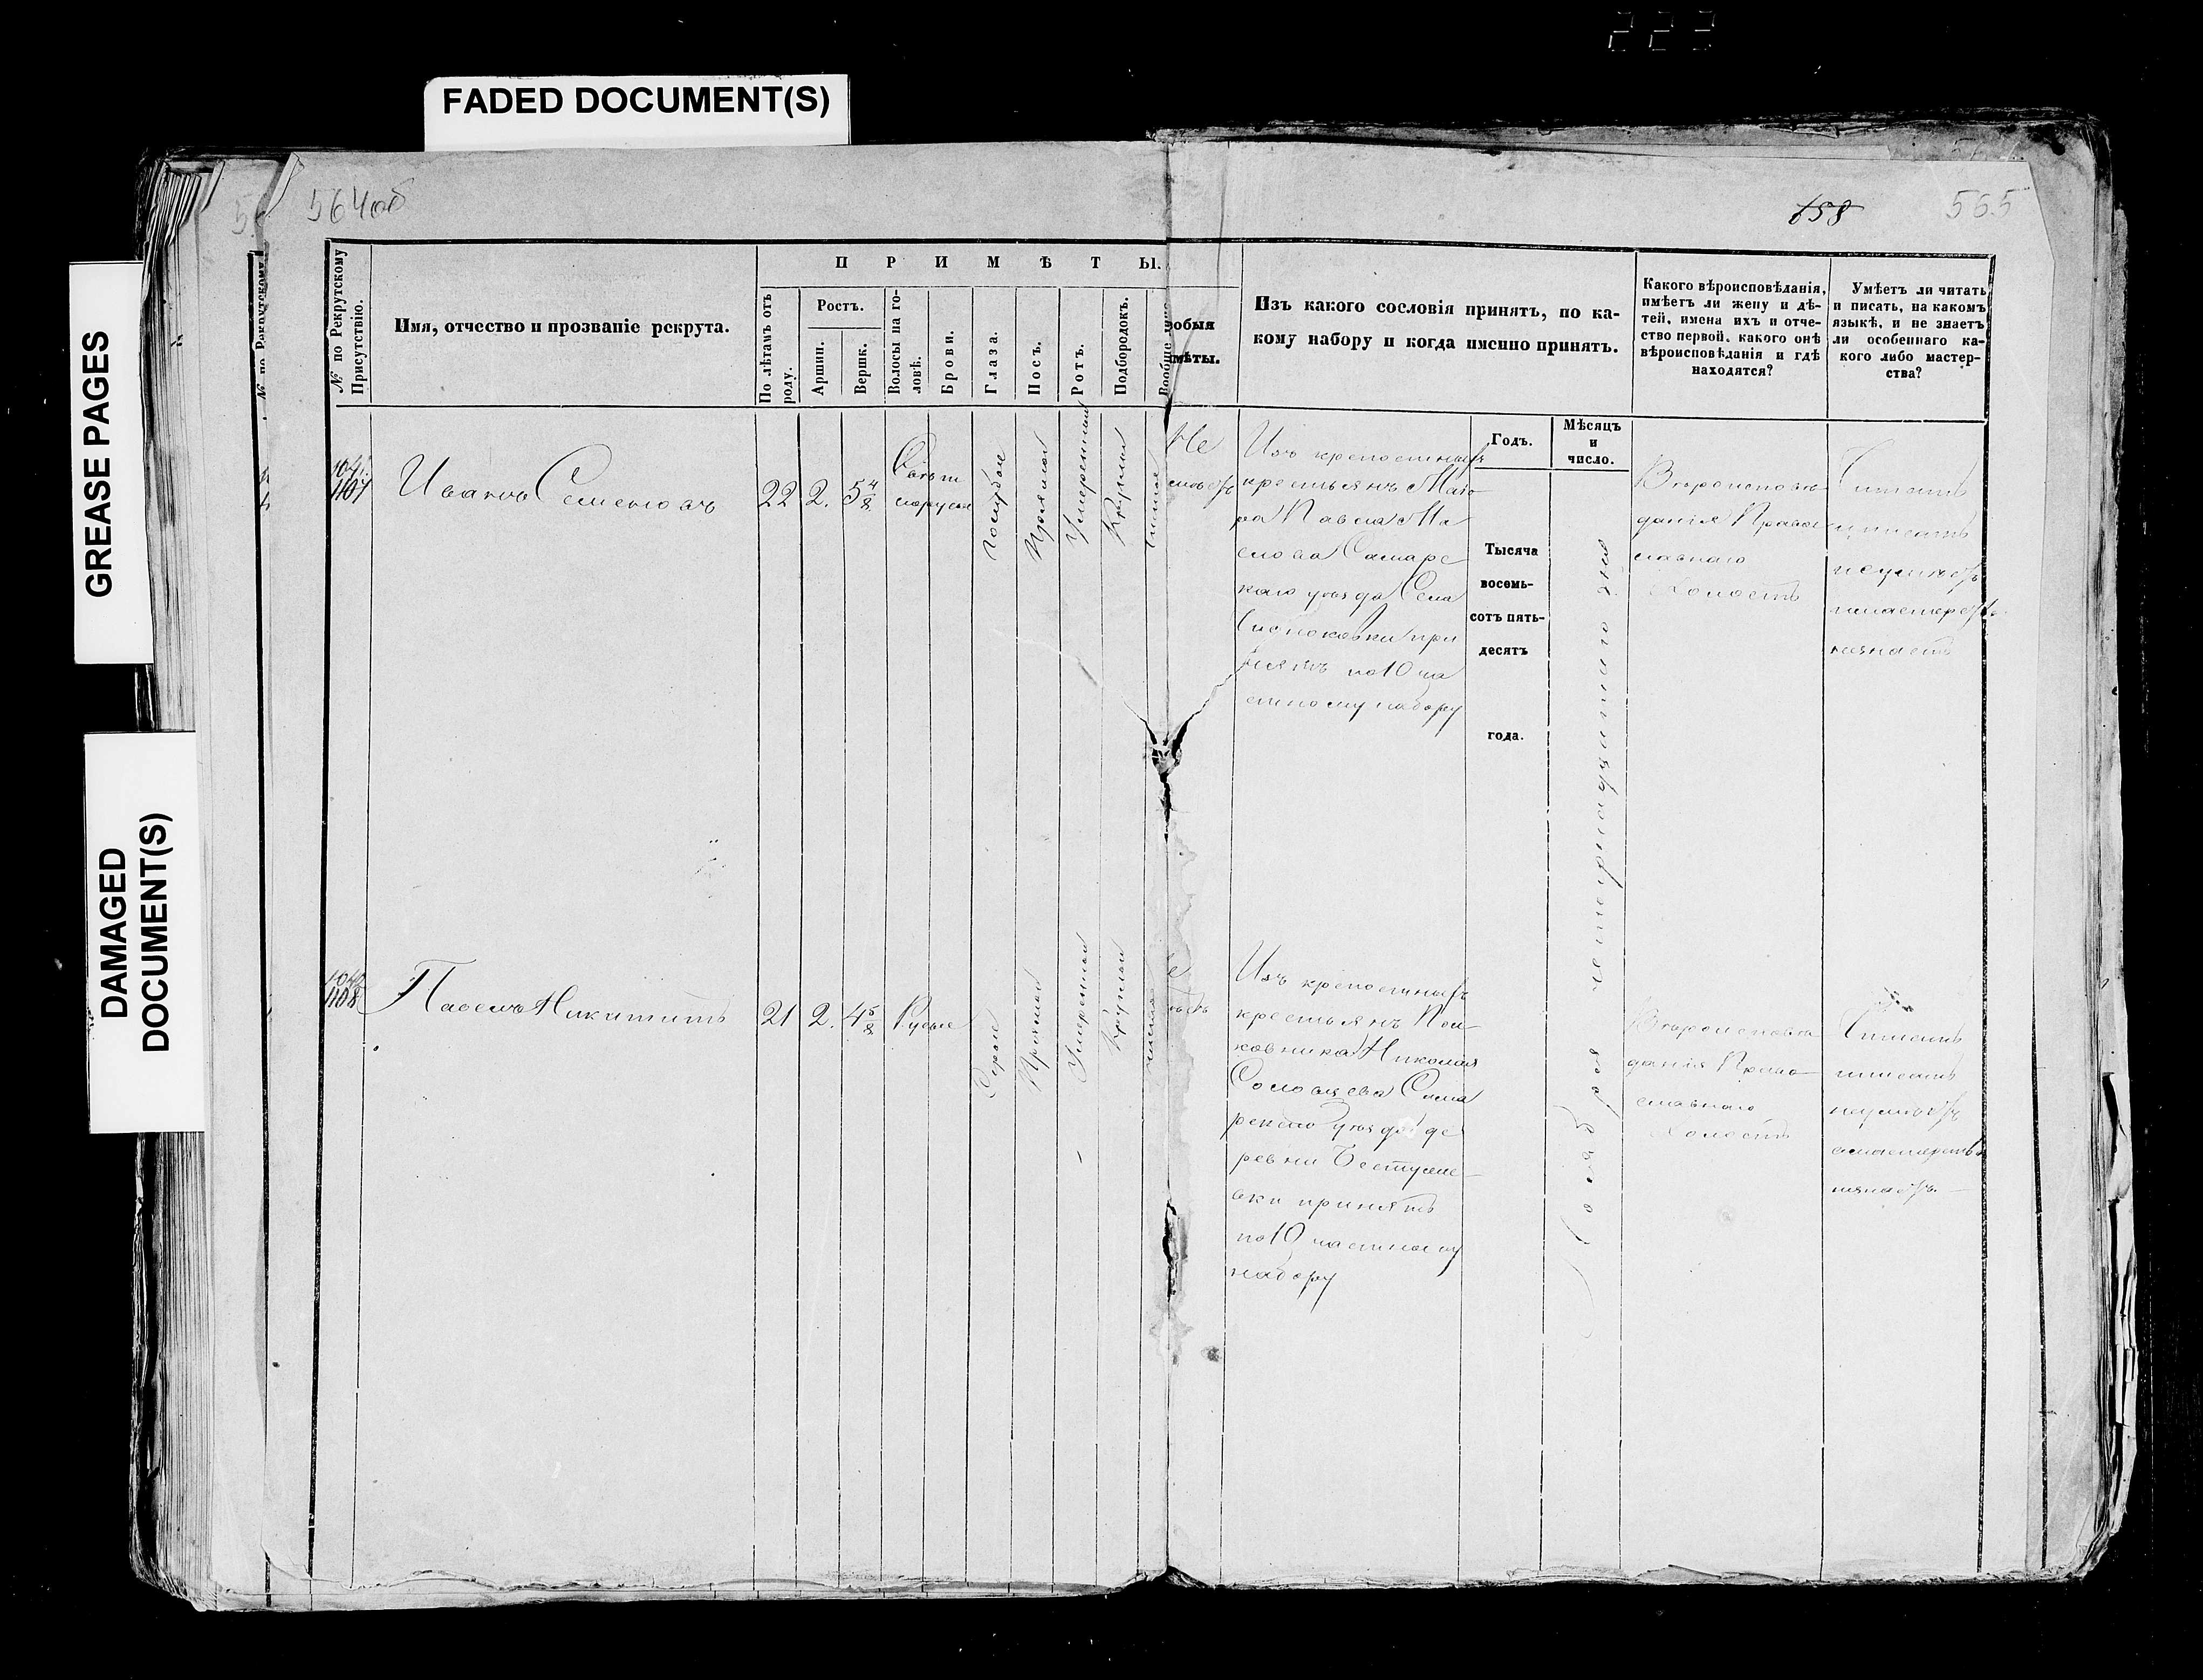 223
FADED DOCUMENT(S)
GREASE PAGES
DAMAGED
DOCUMENT(S)
564об
658
565
№ по Рекрутскому
Присутствію.
Имя, отчество и прозваніе рекрута.
ПРИМѢТЫ.
По лѣтамъ отъ
роду.
Ростъ.
Аршин.
Вершк.
Волосы на го-
ловѣ.
Брови.
Глаза.
Носъ.
Ротъ.
Подбородокъ.
Вообще
обыя
мѣты.
Изъ какого сословія принятъ, по ка-
кому набору и когда именно принятъ.
Какого вѣроисповѣданія,
имѣетъ ли жену и дѣ-
тей, имена ихъ и отче-
ство первой, какого онѣ
вѣроисповѣданія и гдѣ
находятся?
Умѣетъ ли читать
и писать, на какомъ
языкѣ, и не знаетъ
ли особеннаго ка-
кого либо мастер-
ства?
Годъ.
Мѣсяцъ
и
число.
1107
Иванъ Семеновъ
22
2.
5 4/8
Свѣт
лорусые
Голубые
Прямой
Умеренный
Круглый
Не
Изъ крепостныхъ
крестьянъ Маіо
ра Павла Ма
слова Самарс
каго уѣзда Села
при
нятъ по 10 ча
стному набору
Тысяча
восемь-
сотъ пять-
десятъ
года.
Ноября четырнадцатаго дня
Вѣроисповѣ
данія Право
славнаго
Холостъ
Читать
и писать
неумѣетъ
имастерства
незнаетъ
1108
Павелъ Никитинъ
21
2.
4 5/8
Русые
Серые
Прямой
Умеренный
Круглый
Изъ крепостныхъ
крестьянъ Пол-
ковника Николая
Соловцева Сама
рскаго уѣзда де
ревни Бестуже-
вки принятъ
по 10 частному
набору
Вѣроисповѣ
данія Право
славнаго
Холостъ
Читать
иписать
неумѣетъ
имастерства
незнаетъ.